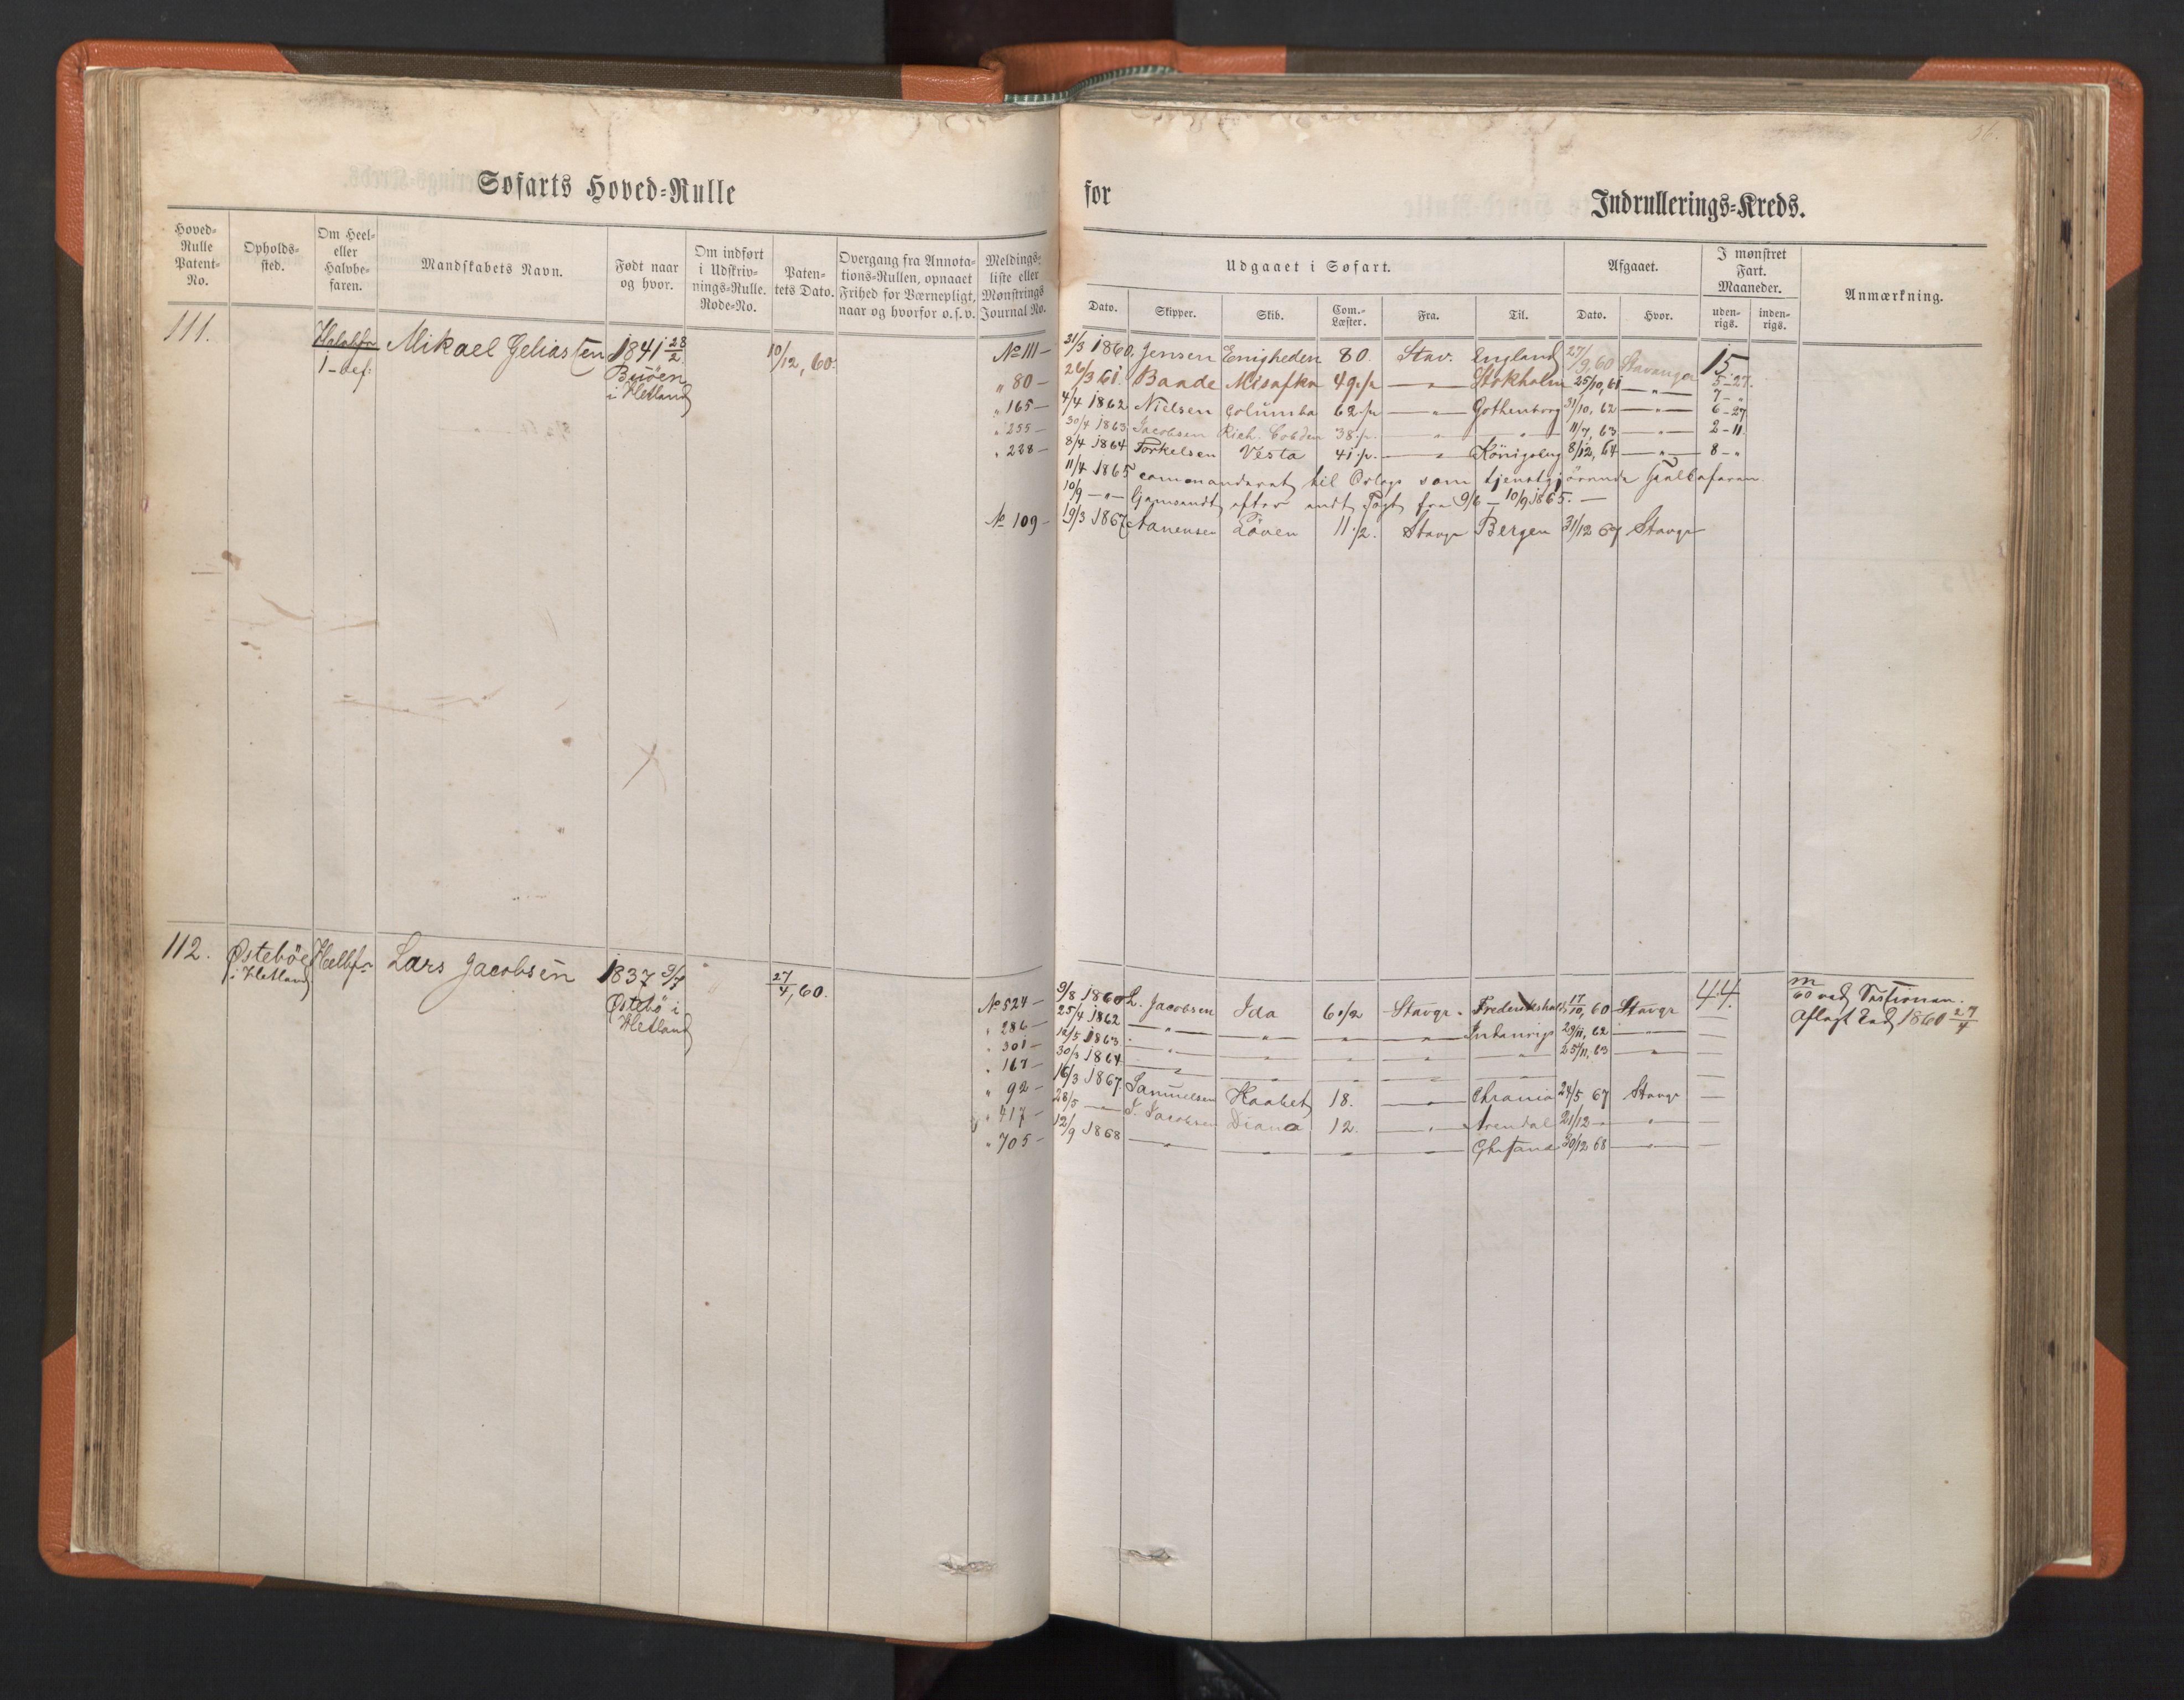 56.
Søfarts Hoved-Rulle
for Indrullerings-Kreds.
Hoved-Rulle Patent-No.
Opholds-sted.
Om Heel- eller Halvbe-faren.
Mandskabets Navn.
Født naar og hvor.
Om indført i Udskriv-nings-Rulle. Rode-No.
Paten-tets Dato.
Overgang fra Annota-tions-Rullen, opnaaet Frihed for Værnepligt, naar og hvorfor o.s.v.
Meldings-liste eller Mønstrings Journal No.
Udgaaet i Søfart.
Dato. Skipper. Skib. Com.-Læster. Fra. Til.
Afgaaet.
Dato. Hvor.
I mønstret Fart. Maaneder.
uden-rigs. inden-rigs.
Anmærkning.
111. Mikael Jeliassen 1841 28/2 10/12, 60.
1-bef:
Buøen
i Hetland
No 111 - 31/3 1860, Jensen Enigheden 80. Stav. England 27/9, 60 Stavanger 15
" 80 - 26/3 61. Baade 49 1/2 — " — Stokholm 25/10, 61 — " — 5-27.
7 - "
" 165 - 4/4 1862 Nielsen Columba 62 1/2 — " — Gothenborg 31/10, 62 — " — 6-27
" 255 - 30/4 1863 Jacobsen Rich. Cobden 38 1/2. — " — — " — 11/7, 63 — " — 2-11.
" 228 - 8/4 1864 Torkelsen Vesta 41 1/2. — " — Königsberg 8/12, 64 — " — 8 - "
11/4 1865 commanderet til Orlogs som tjenstgjörende Heelbefaren.
10/9 — " — Hjemsendt efter endt Togt fra 9/6 — 10/9 1865. —
No 109 - 19/3 1867 Aanensen Löven 11 1/2. Stavgr Bergen 31/12 67 Stavgr
112. Østebøe Heelbf. Lars Jacobsen 1837 9/7 27/4, 60.
i Hetland
Østebø i
Hetland
No 524 - 9/8 1860 L. Jacobsen Ida 6 1/2 Stavgr. Frederikshald 17/10, 60 Stavgr 44.
" 286 - 25/4 1862 — " — — " — — " — — " — Indenrigs 29/11, 62 — " —
" 301 - 12/5 1863 — " — — " — — " — — " — — " — 25/11, 63 — " —
" 167 - 30/3 1864 — " — — " — — " — — " —
" 92 - 16/3 1867 Samuelsen Haabet 18. — " — Chrania 24/5 67 Stavgr
" 417 - 28/5 — L. Jacobsen Diana 12. — " — Arendal 21/12 — " — " —
" 705 - 12/9 1868 — " — — " — — " — — " — 30/12 68 — " —
Aflagt Eed 1860 27/4